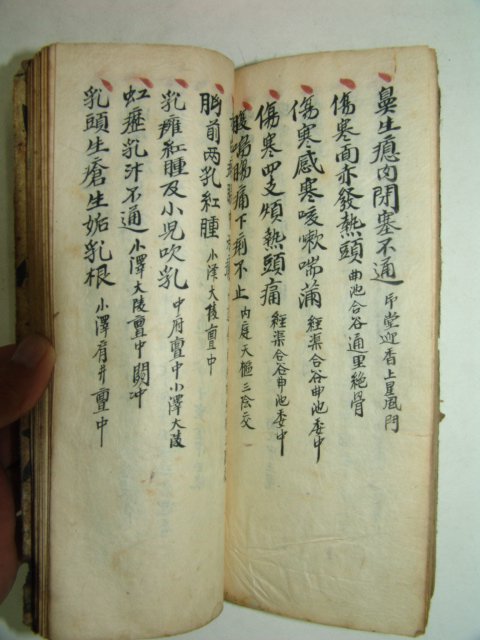 鼻生瘜肉閉塞不通 印堂迎香上星風門
傷寒面赤發熱頭 曲池合谷通里絶骨
傷寒感寒咳嗽喘滿 經渠合谷曲池委中
傷寒四支煩熱頭痛 經渠合谷曲池委中
腹鳴腸痛下痢不止 內庭天樞三陰交
胸前两乳紅腫 小澤大陵亶中
乳癰紅腫及小児吹乳 中府亶中小澤大陵
虹壅乳汁不通 小澤大陵亶中関冲
乳頭生瘡生妬乳根 小澤肩井亶中